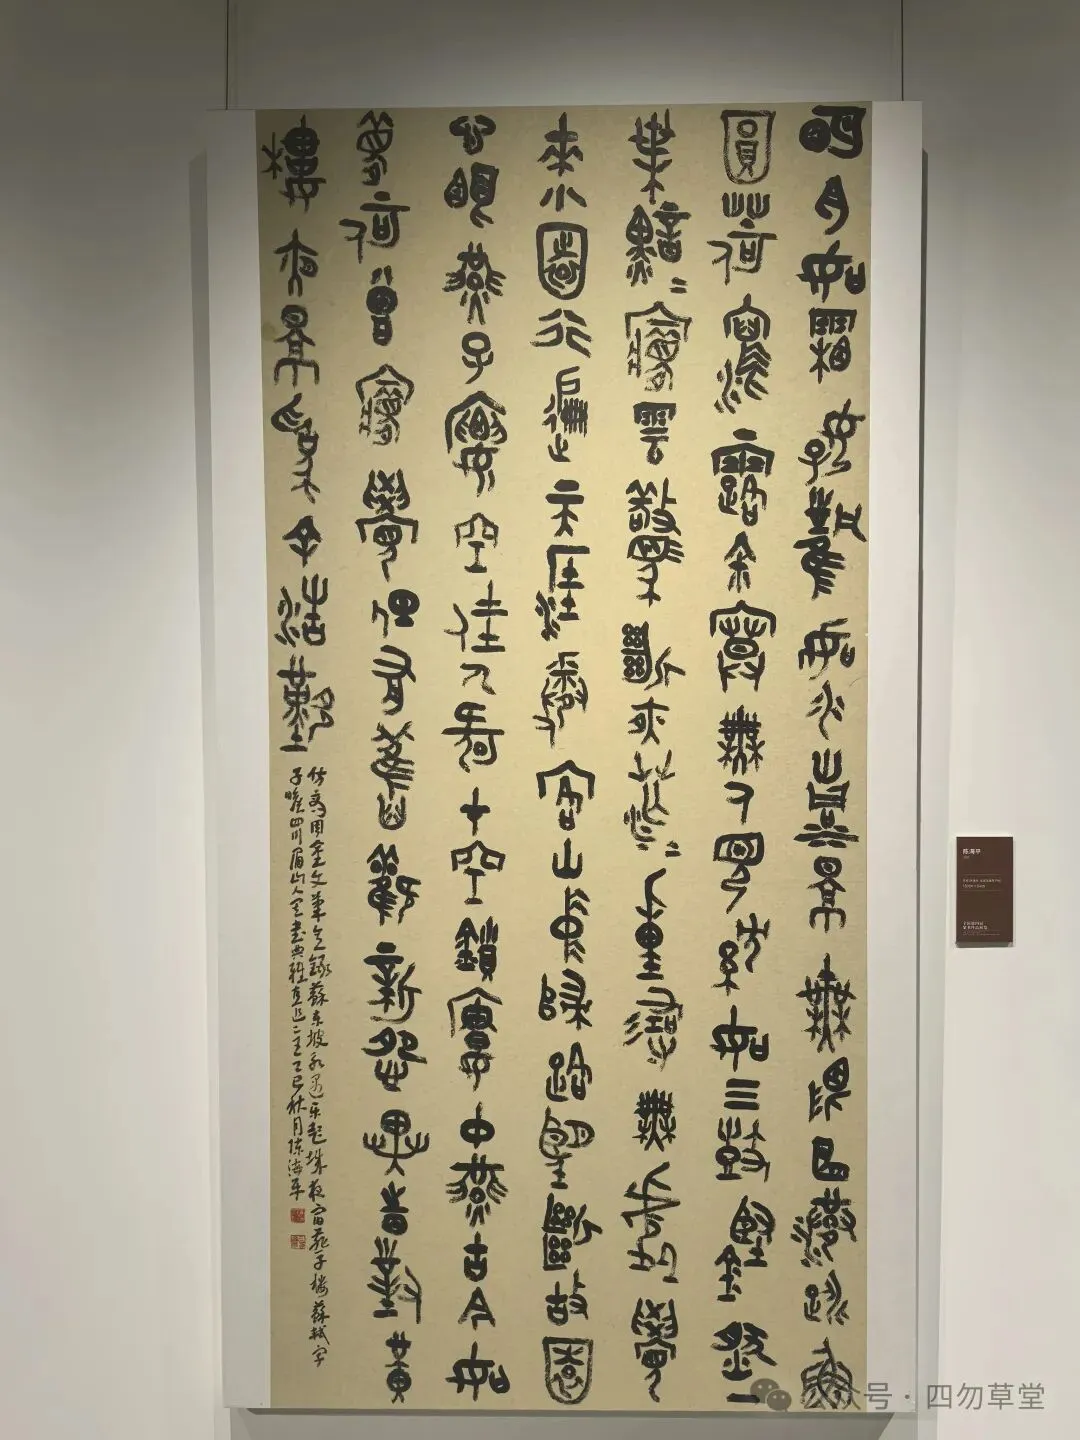 明月如霜好風如水清景無限曲港跳魚
圓荷瀉露寂寞無人見紞如三鼓鏗然一
葉黯黯夢雲驚斷夜茫茫重尋無處覺
來小園行遍天涯倦客山中歸路望斷故園
心眼燕子樓空佳人何在空鎖樓中燕古今如
夢何曾夢覺但有舊歡新怨異時對黃
樓夜景為余浩嘆
用金文筆意錄蘇東坡永遇樂彭城夜宿燕子樓蘇軾字
子瞻四川眉山人其書典雅直追二王乙巳秋月陳海平
陈海平
公众号·四勿草堂